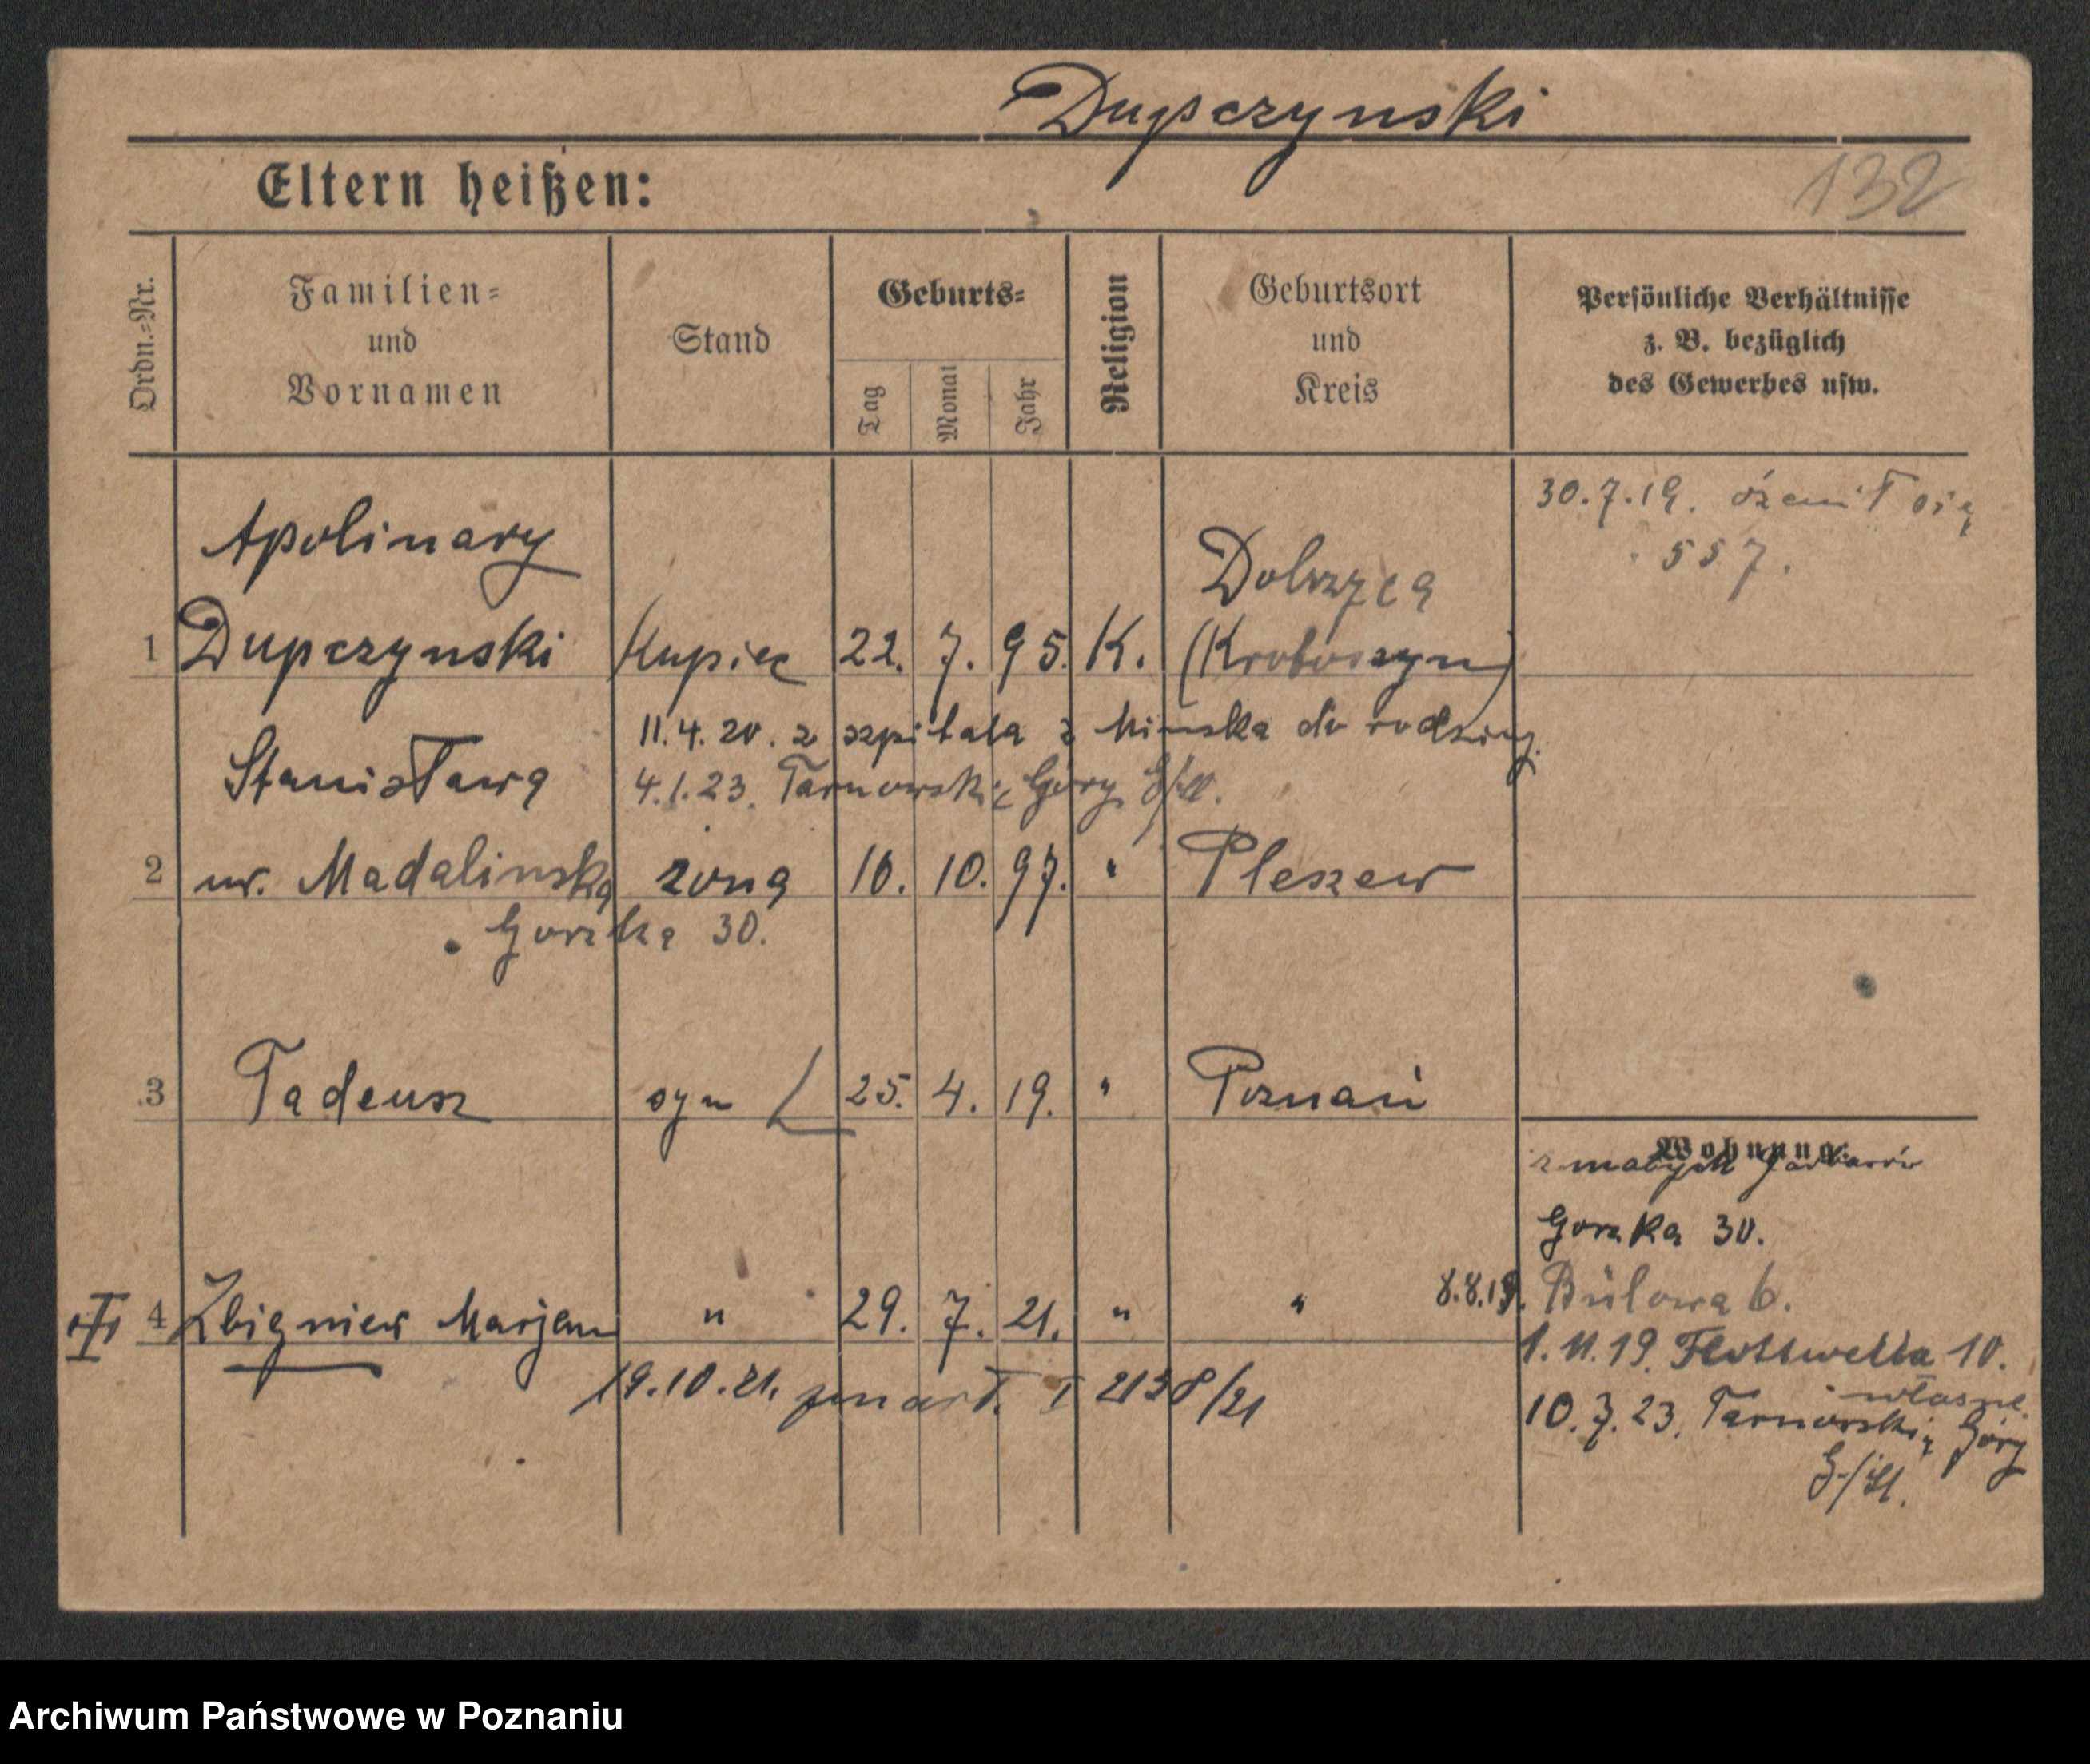 Dupczynski
132
Eltern heißen:
Ordn.=Nr.
Familien=
und
Vornamen
Stand
Geburts=
Tag
Monat
Jahr
Religion
Geburtsort
und
Kreis
Persönliche Verhältnisse
z. B. bezüglich
des Gewerbes usw.
30.7.19. ożenił się
557.
Apolinary
Dobrzyca
1 Dupczynski Kupiec 22. 7. 95. K. (Krotoszyn)
11.4.20. z szpitala z Minska do rodziny.
Stanisława
4.1.23. Tarnowskie Góry G/Śl.
2 ur. Madalinska zona 16. 10. 97. " Pleszew
Gorzka 30.
3 Tadeusz syn 25. 4. 19. " Poznań
Wohnung:
z małych Garbarów
Gorzka 30.
8.8.19. Bülowa 6.
4 Zbigniew Marjan " 29. 7. 21. " "
1.11.19. Flottwella 10.
19.10.21. zmarł. I 2138/21
własne.
10.7.23. Tarnowskie Góry
G/Śl.
Archiwum Państwowe w Poznaniu